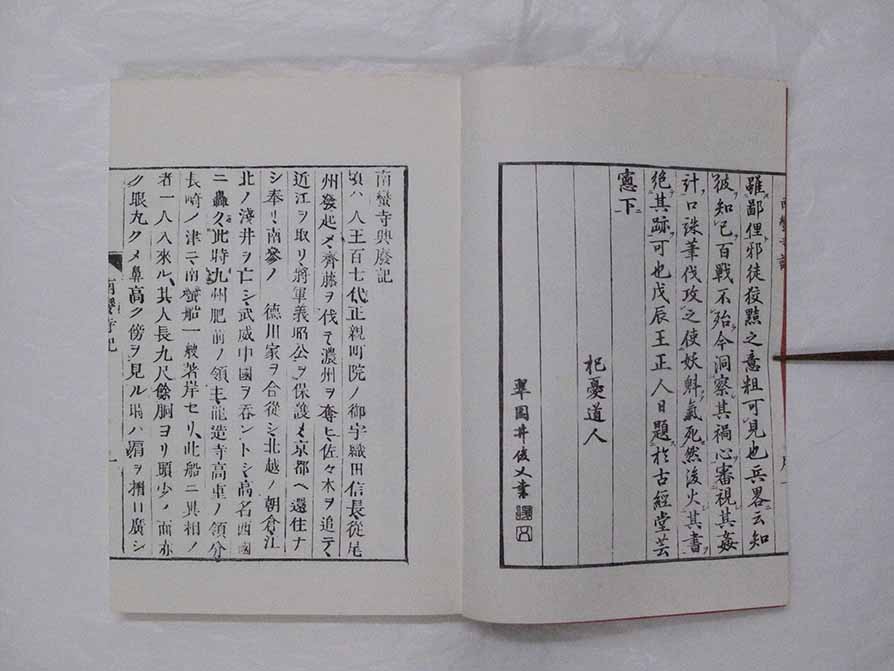 雖鄙俚邪徒狡黠之意粗可見也兵畧云知
彼知己百戰不殆今洞察其禍心審視其姦
計口誅筆伐攻之使妖斛氣死然後火其書
絕其跡可也戊辰王正人日題於古經堂芸
窻下
杞憂道人
翠園井俊乂書
南蠻寺興廢記
頃ハ人王百七代正親町院ノ御宇織田信長從尾
州發起シ齊藤ヲ伐テ濃州ヲ奪ヒ佐々木ヲ追テ
近江ヲ取リ將軍義昭公ヲ保護シ京都ヘ還住ナ
シ奉リ南參ノ 德川家ヲ合從シ北越ノ朝倉江
北ノ淺井ヲ亡シ武威中國ヲ吞ントシ高名西國
ニ轟ク此時九州肥前ノ領主龍造寺高重ノ領分
長崎ノ津ニ南蠻船一艘著岸セリ此船ニ異相ノ
者一人入來ル其人長九尺餘胴ヨリ頭少ノ面赤
ク眼丸クメ鼻高ク傍ヲ見ル時ハ肩ヲ摺口廣シ
南蠻寺記
一